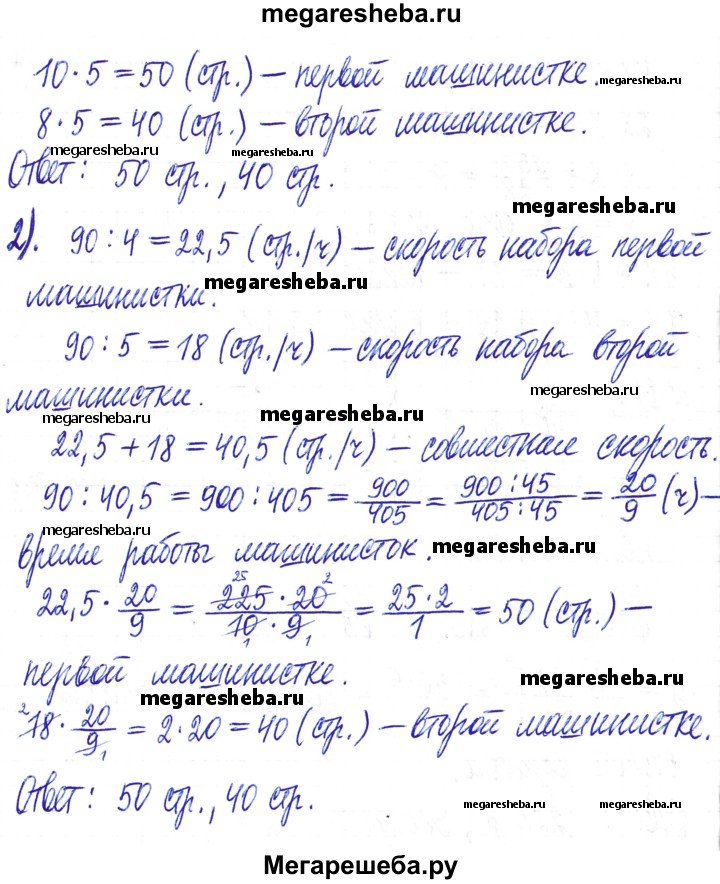 megaresheba.ru
10 · 5 = 50 (стр.) – первой машинистке. megaresheba.ru
8 · 5 = 40 (стр.) – второй машинистке.
megaresheba.ru megaresheba.ru
Ответ: 50 стр., 40 стр.
megaresheba.ru
2). 90 : 4 = 22,5 (стр./ч) – скорость набора первой
машинистки. megaresheba.ru
90 : 5 = 18 (стр./ч) – скорость набора второй
машинистки. megaresheba.ru
megaresheba.ru megaresheba.ru
22,5 + 18 = 40,5 (стр./ч) – совместная скорость.
90 : 40,5 = 900 : 405 = 900/405 = 900:45/405:45 = 20/9 (ч) –
megaresheba.ru
время работы машинисток. megaresheba.ru
22,5 · 20/9 = 225 · 20/10 · 9 = 25 · 2/1 = 50 (стр.) –
первой машинистке.
megaresheba.ru megaresheba.ru
18 · 20/9 = 2 · 20 = 40 (стр.) – второй машинистке.
Ответ: 50 стр., 40 стр.
megaresheba.ru megaresheba.ru
Мегарешеба.ру